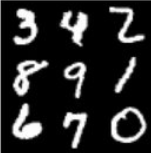 3 4 2
8 9 1
6 7 0